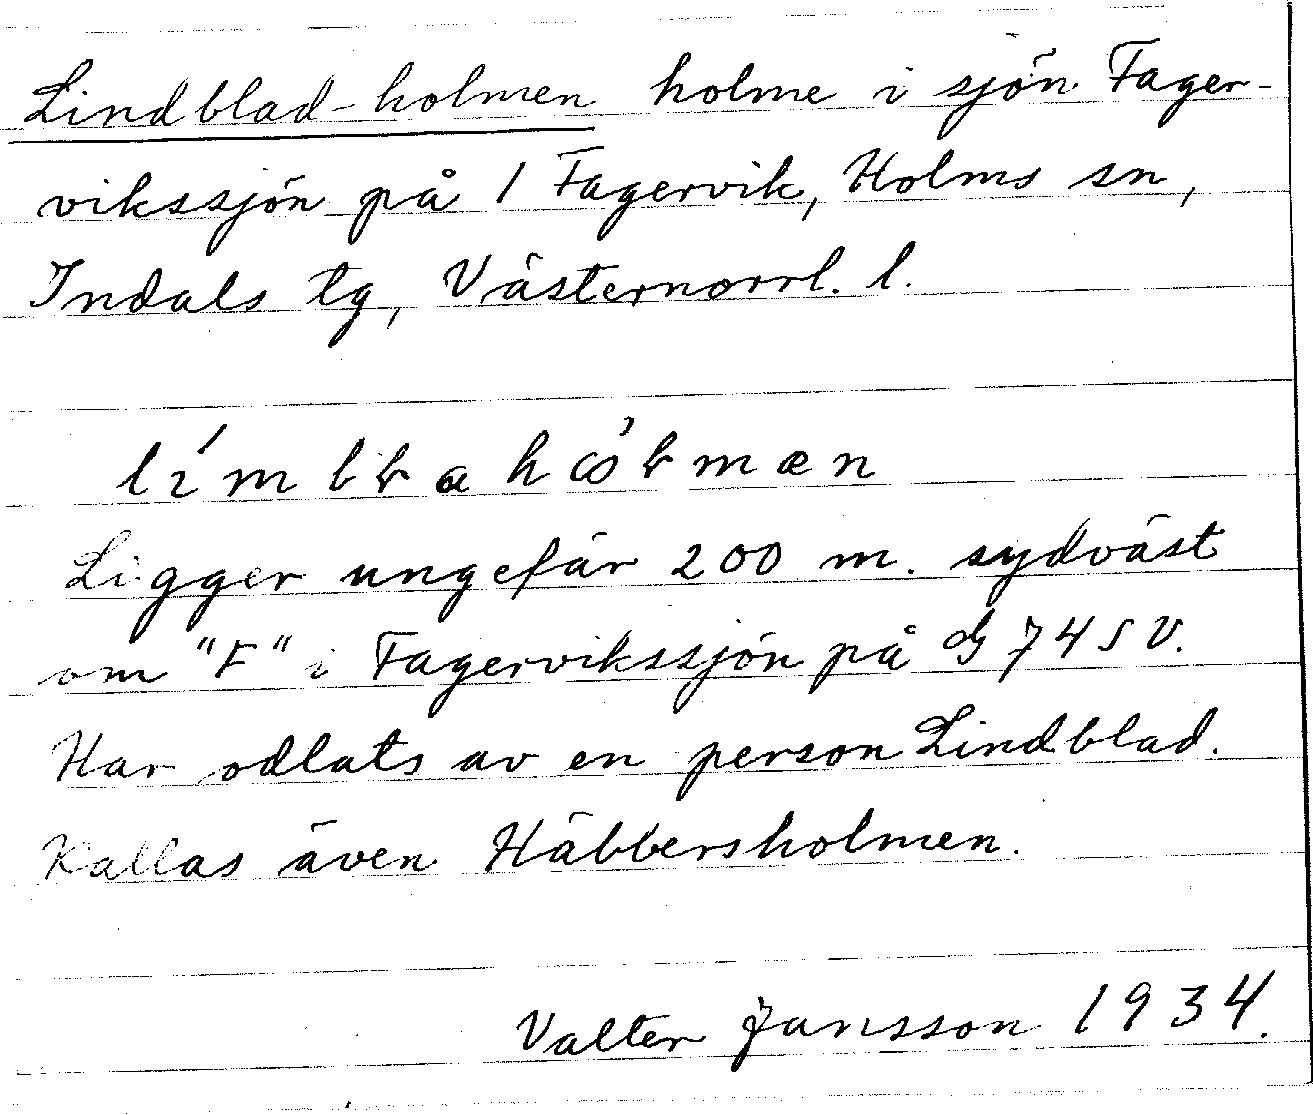 Lindblad-holmen holme i sjön Fager-
vikssjön på 1 Fagervik, Holms sn,
Indals tg, Västernorrl. l.
Ligger ungefär 200 m. sydväst
om "F" i Fagervikssjön på G 74 SV.
Har odlats av en person Lindblad.
Kallas även Häbbersholmen.
Valter Jansson 1934.